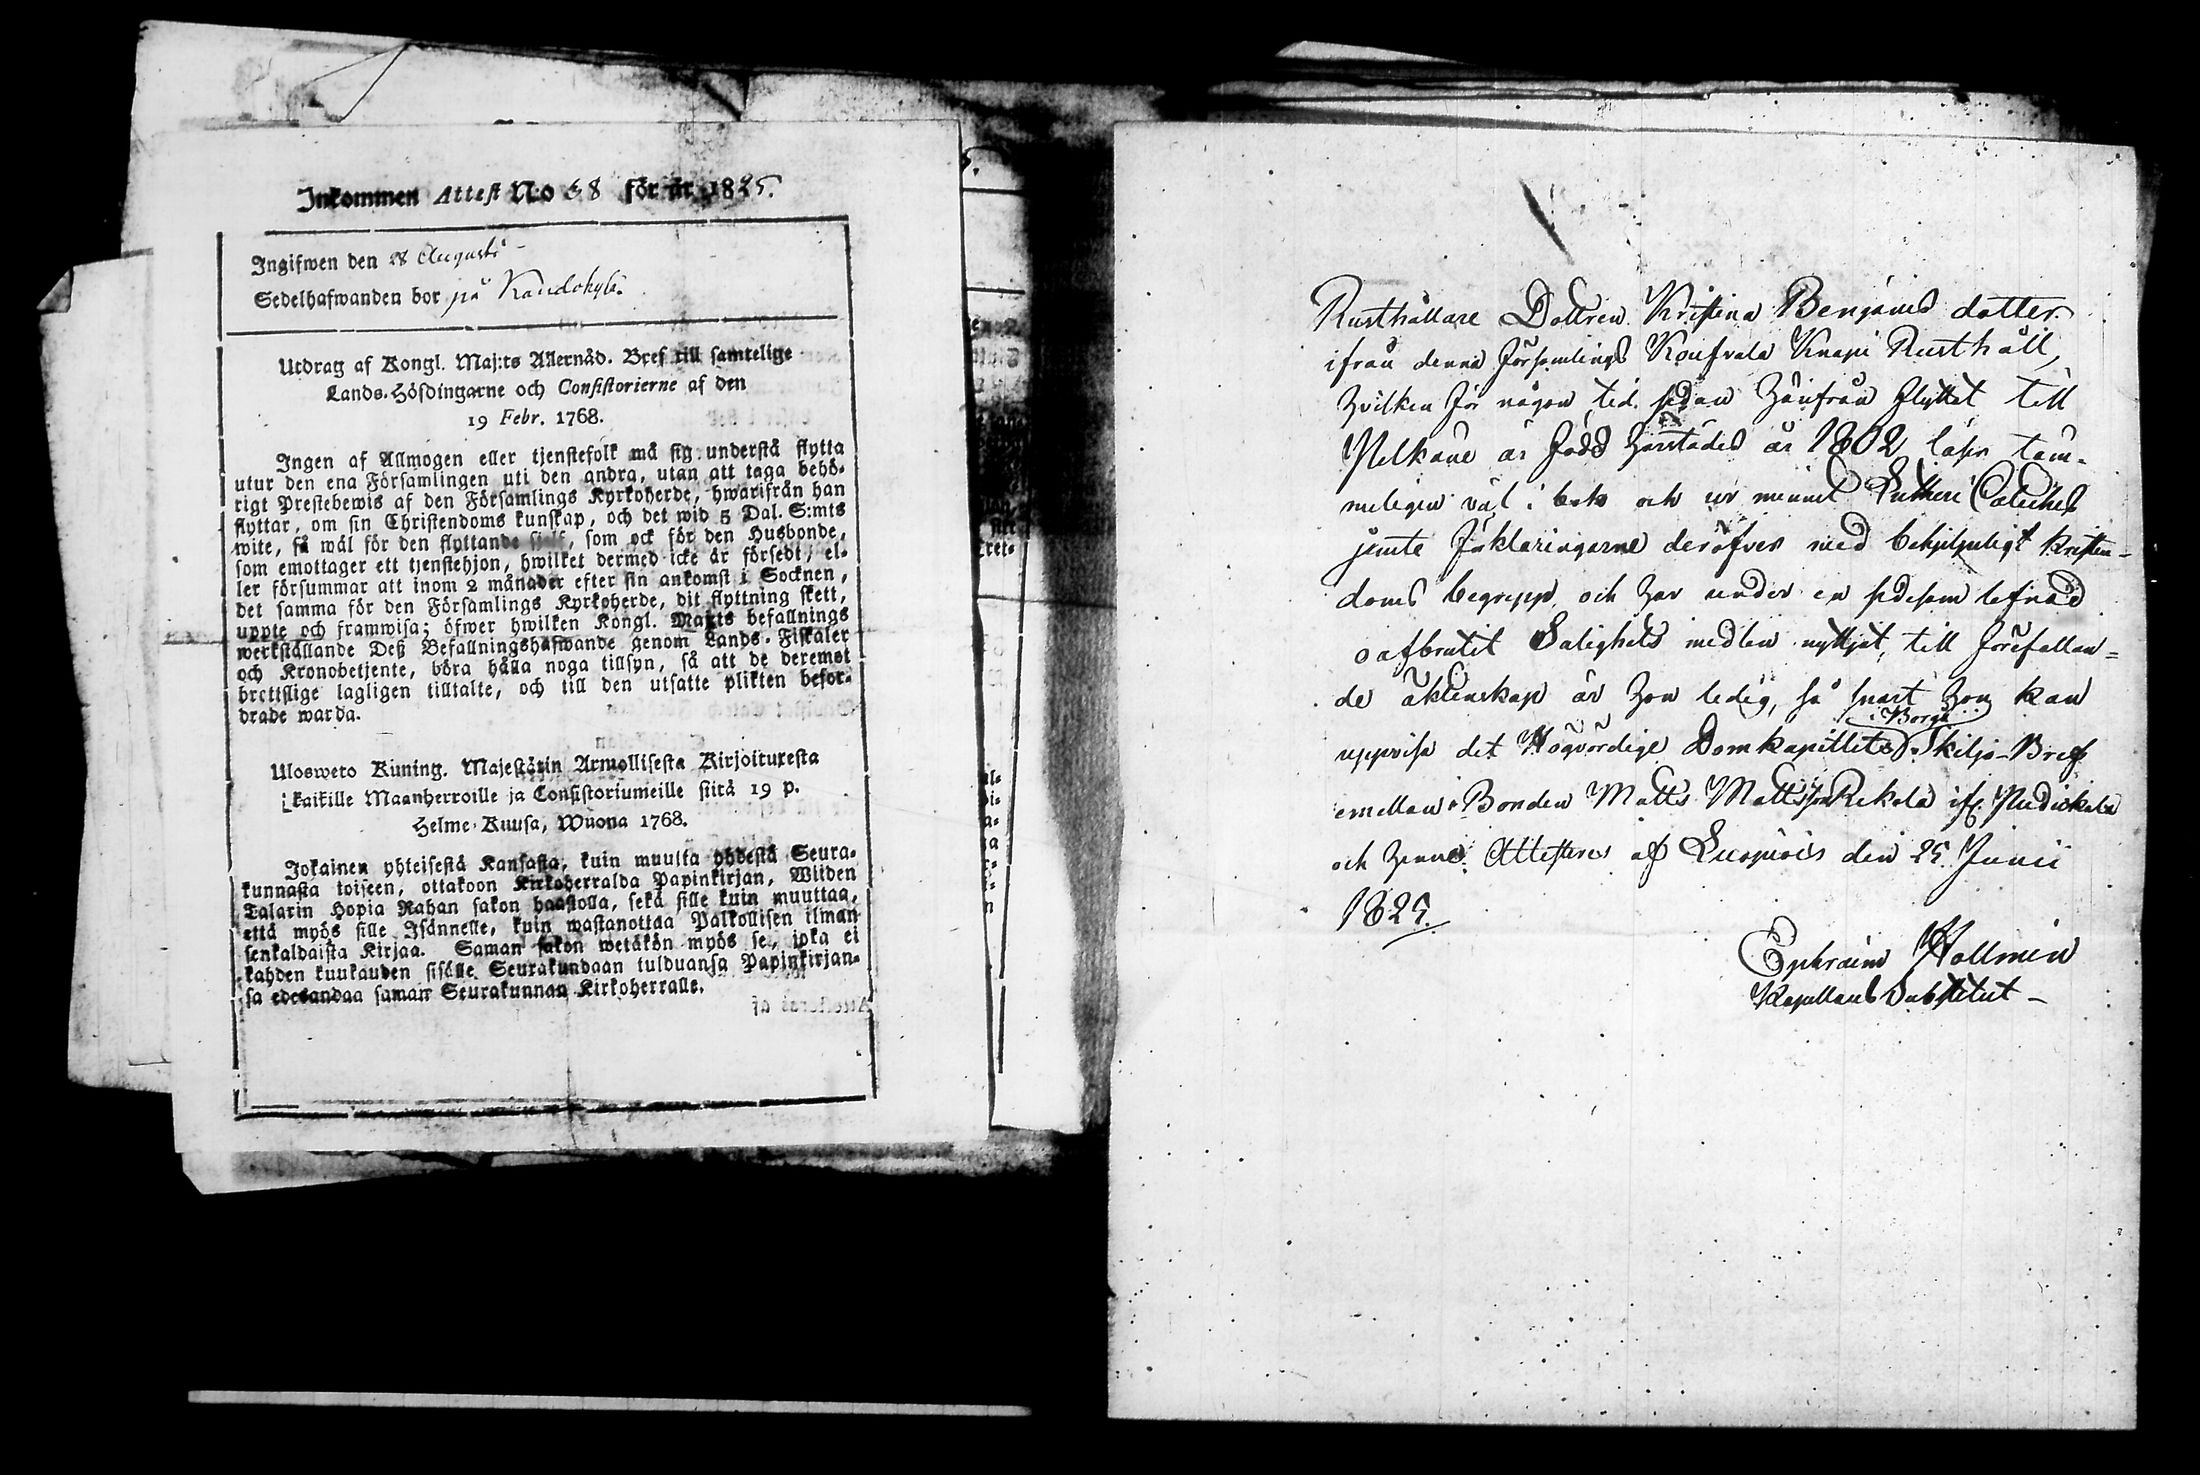 Inkommen Attest N:o 68 för år 1825.
Ingifwen den 28 Augusti
Sedelhafwanden bor på
Utdrag af Kongl. Maj:ts Allernåd. Bref till samtelige
Lands-Höfdingarne och Consistorierne af den
19 Febr. 1768.
Ingen af Allmogen eller tjenstefolk må sig understå flytta
utur den ena Församlingen uti den andra, utan att taga behö-
rigt Prestebewis af den Församlings Kyrkoherde, hwarifrån han
flyttar, om sin Christendoms kunskap, och det wid 5 Dal. S:mts
wite, så wäl för den flyttande sjelf, som ock för den Husbonde,
som emottager ett tjenstehjon, hwilket dermed icke är försedt, el-
ler försummar att inom 2 månader efter sin ankomst i Socknen,
det samma för den Församlings Kyrkoherde, dit flyttning skett,
uppte och framwisa; öfwer hwilken Kongl. Maj:ts befallnings
werkställande Deß Befallningshafwande genom Lands-Fiskaler
och Kronobetjente, böra hålla noga tillsyn, så att de deremot
brottslige lagligen tilltalte, och till den utsatte plikten befor-
drade warda.
Ulosweto Küning. Majestätin Armollisesta Kirjoituxesta
kaikille Maanherroille ja Consistoriumeille siitä 19 p.
Helme-Kuusa, Wuona 1768.
Jokainen yhteisestä Kansasta, kuin muutta yhdestä Seura-
kunnasta toiseen, ottakoon Kirkoherralda Papinkirjan, Wiiden
Talarin Hopia Rahan sakon haastolla, sekä sille kuin muuttaa,
että myös sille Isännelle, kuin wastanottaa Palkollisen ilman
senkaldaista Kirjaa. Saman sakon wetäkön myös se, joka ei
kahden kuukauden sisälle Seurakundaan tulduansa Papinkirjan-
sa edesandaa saman Seurakunnan Kirkoherralle.
Rusthållare Dottren Kristina Benjamis dotter
ifrån denna Församlings Konfvala Knapi Rusthåll,
hvilken för någon tid sedan härifrån flyttat till
Pelkäne är född härstädes år 1802 läser täm-
meligen väl i bok och ur minnet Lutheri Catiches
jemte förklaringarne deröfver med behjelpeligt kristen-
doms begrepp och har under en sedesam lefnad
oafbrutit Salighets medlen nyttjat, till förefallan-
de äktenskap är hon ledig, så snart hon kan
i Borgå
uppvisa det Högvördige Domkapitlets Skiljo-Bref
emellan Bonden Matts Mattsson Rekola if.
och henne. Attesteras af Luopiois den 25 Junii
1825.
Ephraim Hollmén
Kapellans Substitut